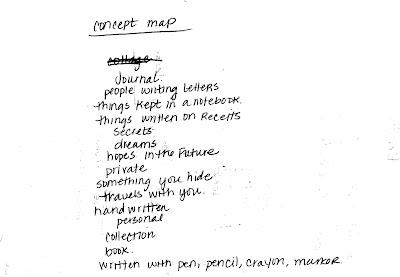 concept map
collage
Journal.
people writing letters
things kept in a notebook.
things written on Recerts
secrets
dreams
hopes in the Future
private
something you hide
travels with you.
hand written
personal
collection
book.
written with pen, pencil, crayon, marker